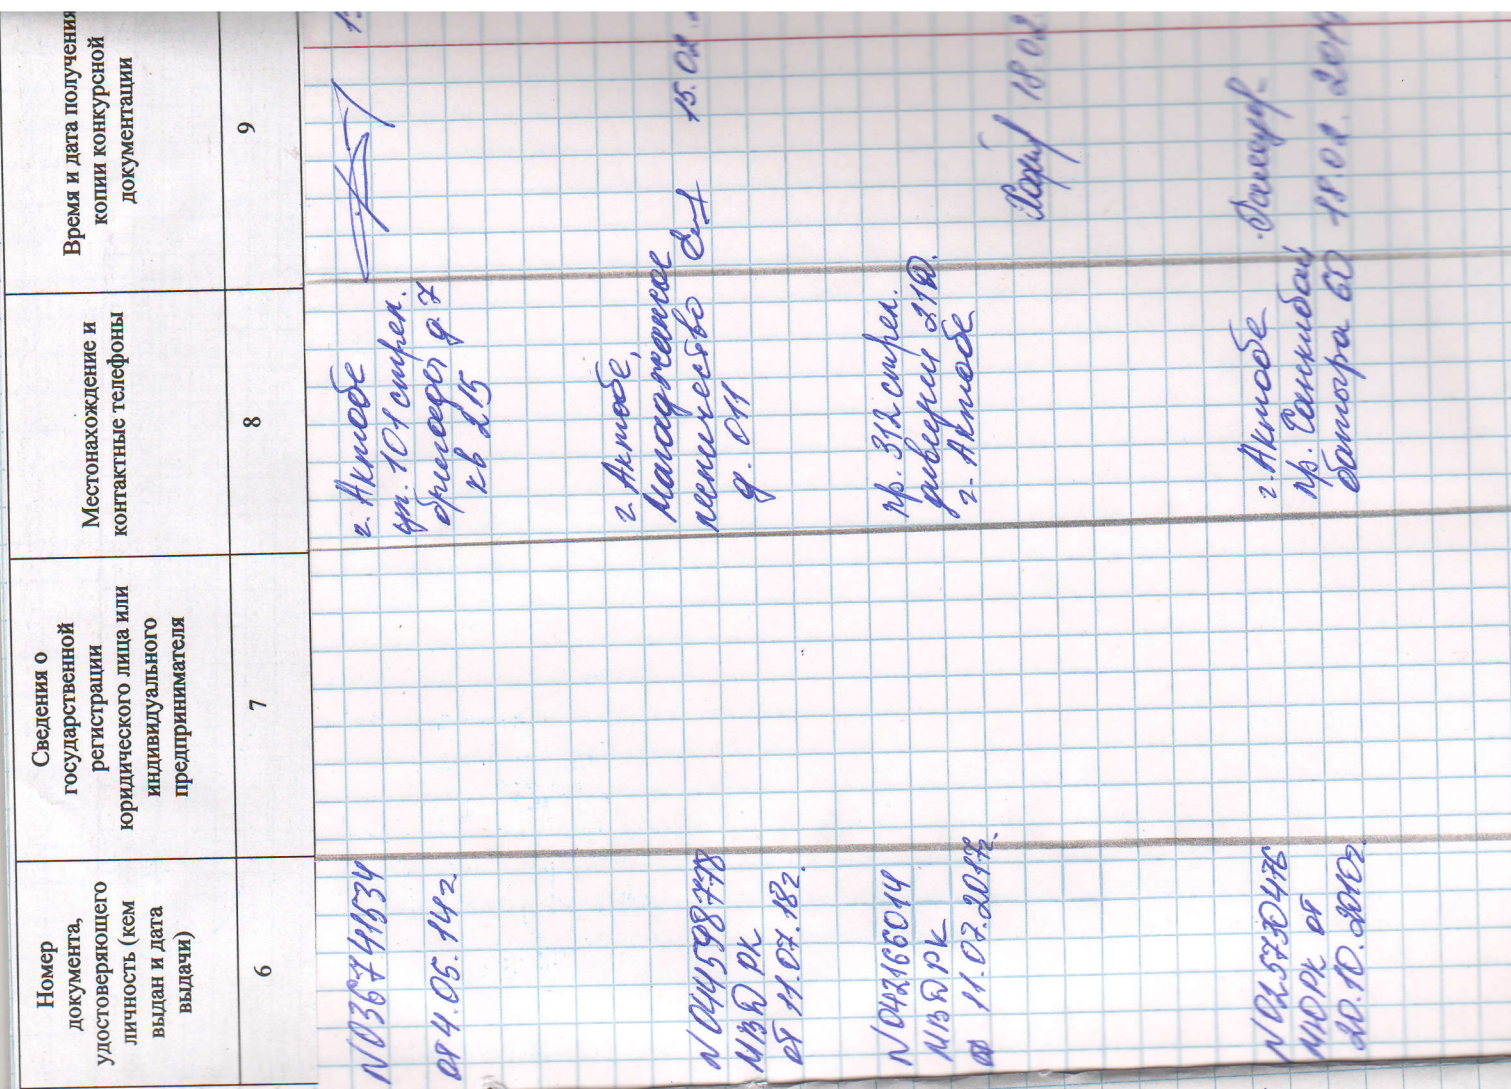 Номер
документа,
удостоверяющего
личность (кем
выдан и дата
выдачи)
Сведения о
государственной
регистрации
юридического лица или
индивидуального
предпринимателя
Местонахождение и
контактные телефоны
Время и дата получения
копии конкурсной
документации
6
7
8
9
N036741534
от 4.05.14г
г. Актобе
ул. 101 стрел.
бригады д.7
кв 215
N044598778
МВД РК
от 11.07.18г.
г. Актобе,
лесничество
д. 011
15.02.
N042166014
МВД РК
от 11.07.2017г.
пр. 312 стрел.
дивизии 21В.
г. Актобе
18.02
N025730476
МЮРК от
20.10.2010г.
г. Актобе
пр. Санкибай
батыра 60
18.02.201